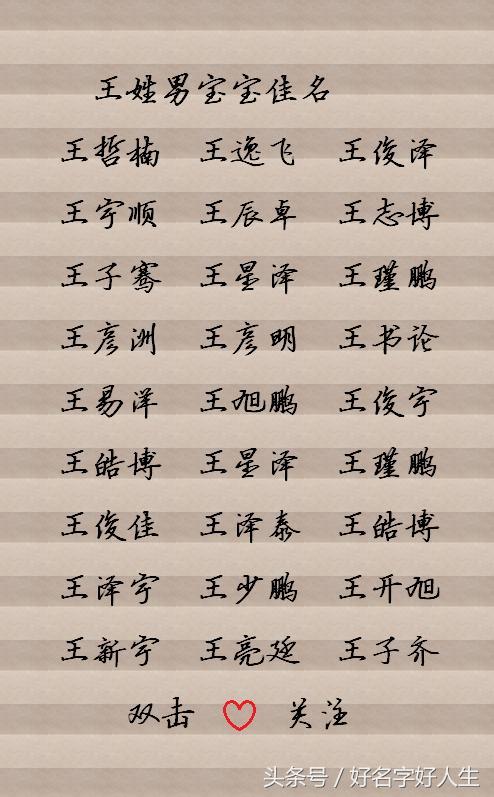 王姓男宝宝佳名
王哲楠 王逸飞 王俊泽
王宇顺 王辰卓 王志博
王子骞 王星泽 王瑾鹏
王彦洲 王彦明 王书论
王易洋 王旭鹏 王俊宇
王皓博 王星泽 王瑾鹏
王俊佳 王泽泰 王皓博
王泽宇 王少鹏 王开旭
王新宇 王亮廷 王子齐
双击 关注
头条号 / 好名字好人生